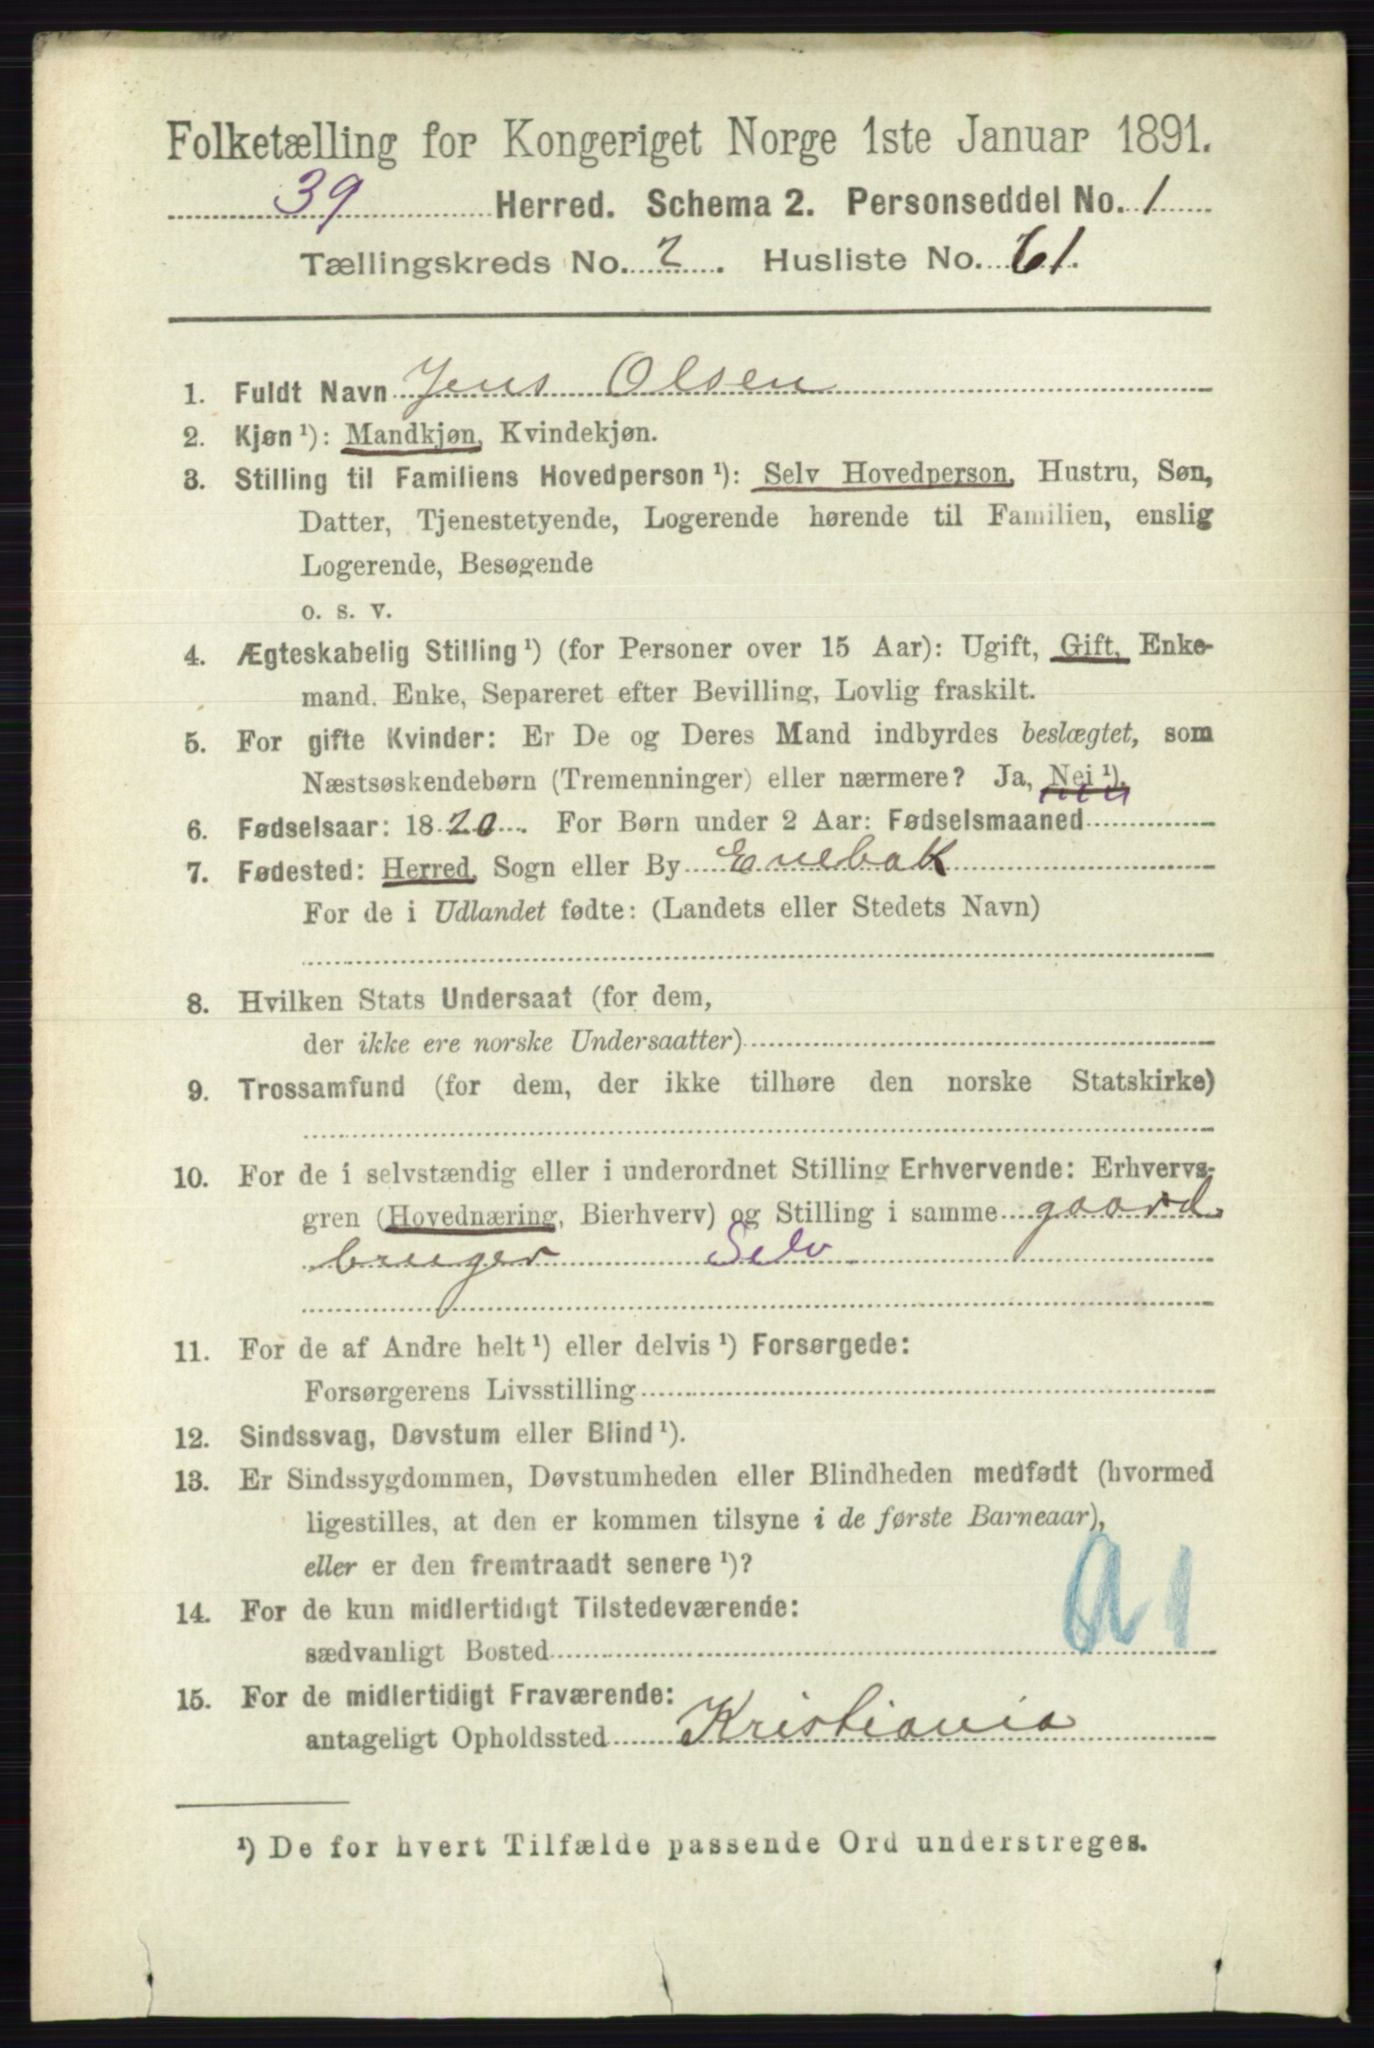 Folketælling for Kongeriget Norge 1ste Januar 1891.
39 Herred. Schema 2. Personseddel No. 1
Tællingskreds No. 2. Husliste No. 61.
1. Fuldt Navn Jens Olsen
2. Kjøn ¹): Mandkjøn, Kvindekjøn.
3. Stilling til Familiens Hovedperson ¹): Selv Hovedperson, Hustru, Søn,
Datter, Tjenestetyende, Logerende hørende til Familien, enslig
Logerende, Besøgende
o. s. v.
4. Ægteskabelig Stilling ¹) (for Personer over 15 Aar): Ugift, Gift, Enke-
mand, Enke, Separeret efter Bevilling, Lovlig fraskilt.
5. For gifte Kvinder: Er De og Deres Mand indbyrdes beslægtet, som
Næstsøskendebørn (Tremenninger) eller nærmere? Ja, Nei ¹).
6. Fødselsaar: 1820. For Børn under 2 Aar: Fødselsmaaned
7. Fødested: Herred, Sogn eller By Enebak
For de i Udlandet fødte: (Landets eller Stedets Navn)
8. Hvilken Stats Undersaat (for dem,
der ikke ere norske Undersaatter)
9. Trossamfund (for dem, der ikke tilhøre den norske Statskirke)
10. For de i selvstændig eller i underordnet Stilling Erhvervende: Erhvervs-
gren (Hovednæring, Bierhverv) og Stilling i samme gaard
bruger Selv
11. For de af Andre helt ¹) eller delvis ¹) Forsørgede:
Forsørgerens Livsstilling
12. Sindssvag, Døvstum eller Blind ¹).
13. Er Sindssygdommen, Døvstumheden eller Blindheden medfødt (hvormed
ligestilles, at den er kommen tilsyne i de første Barneaar),
eller er den fremtraadt senere ¹)?
14. For de kun midlertidigt Tilstedeværende:
sædvanligt Bosted
A1
15. For de midlertidigt Fraværende:
antageligt Opholdssted Kristiania
¹) De for hvert Tilfælde passende Ord understreges.